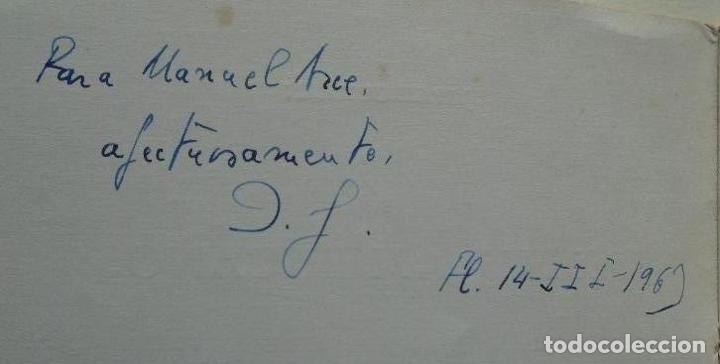 Para Manuel Arce,
afectuosamente,
D. J.
14-III-1963
todocoleccion